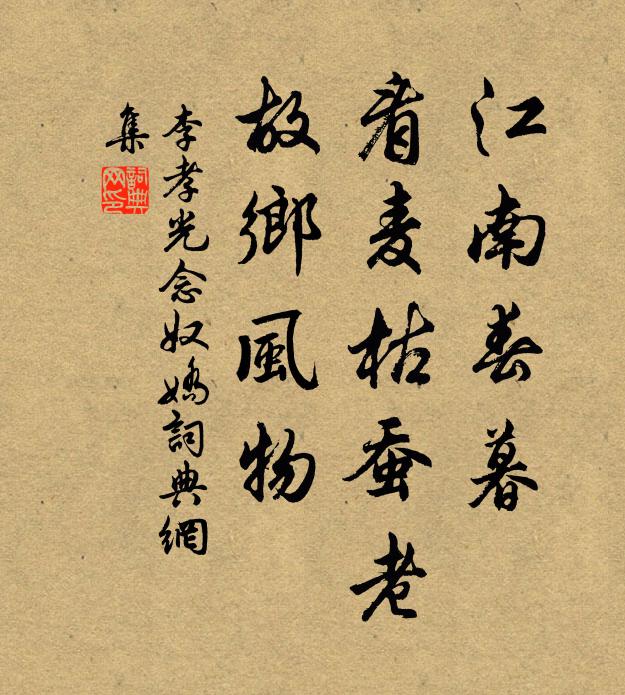 江南春暮
看麦枯蚕老
故鄉風物
李孝光念奴嬌詞典網
集
詞典网印